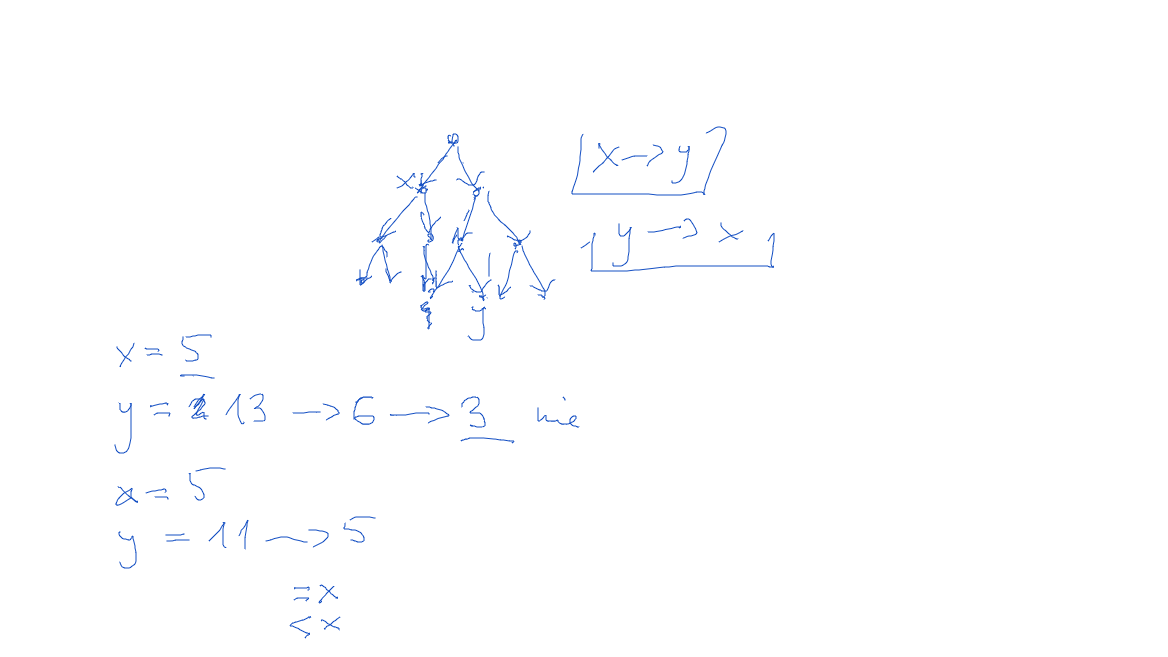 x → y
y → x
x
y
x = 5
y = 13 → 6 → 3 nie
x = 5
y = 11 → 5
= x
< x